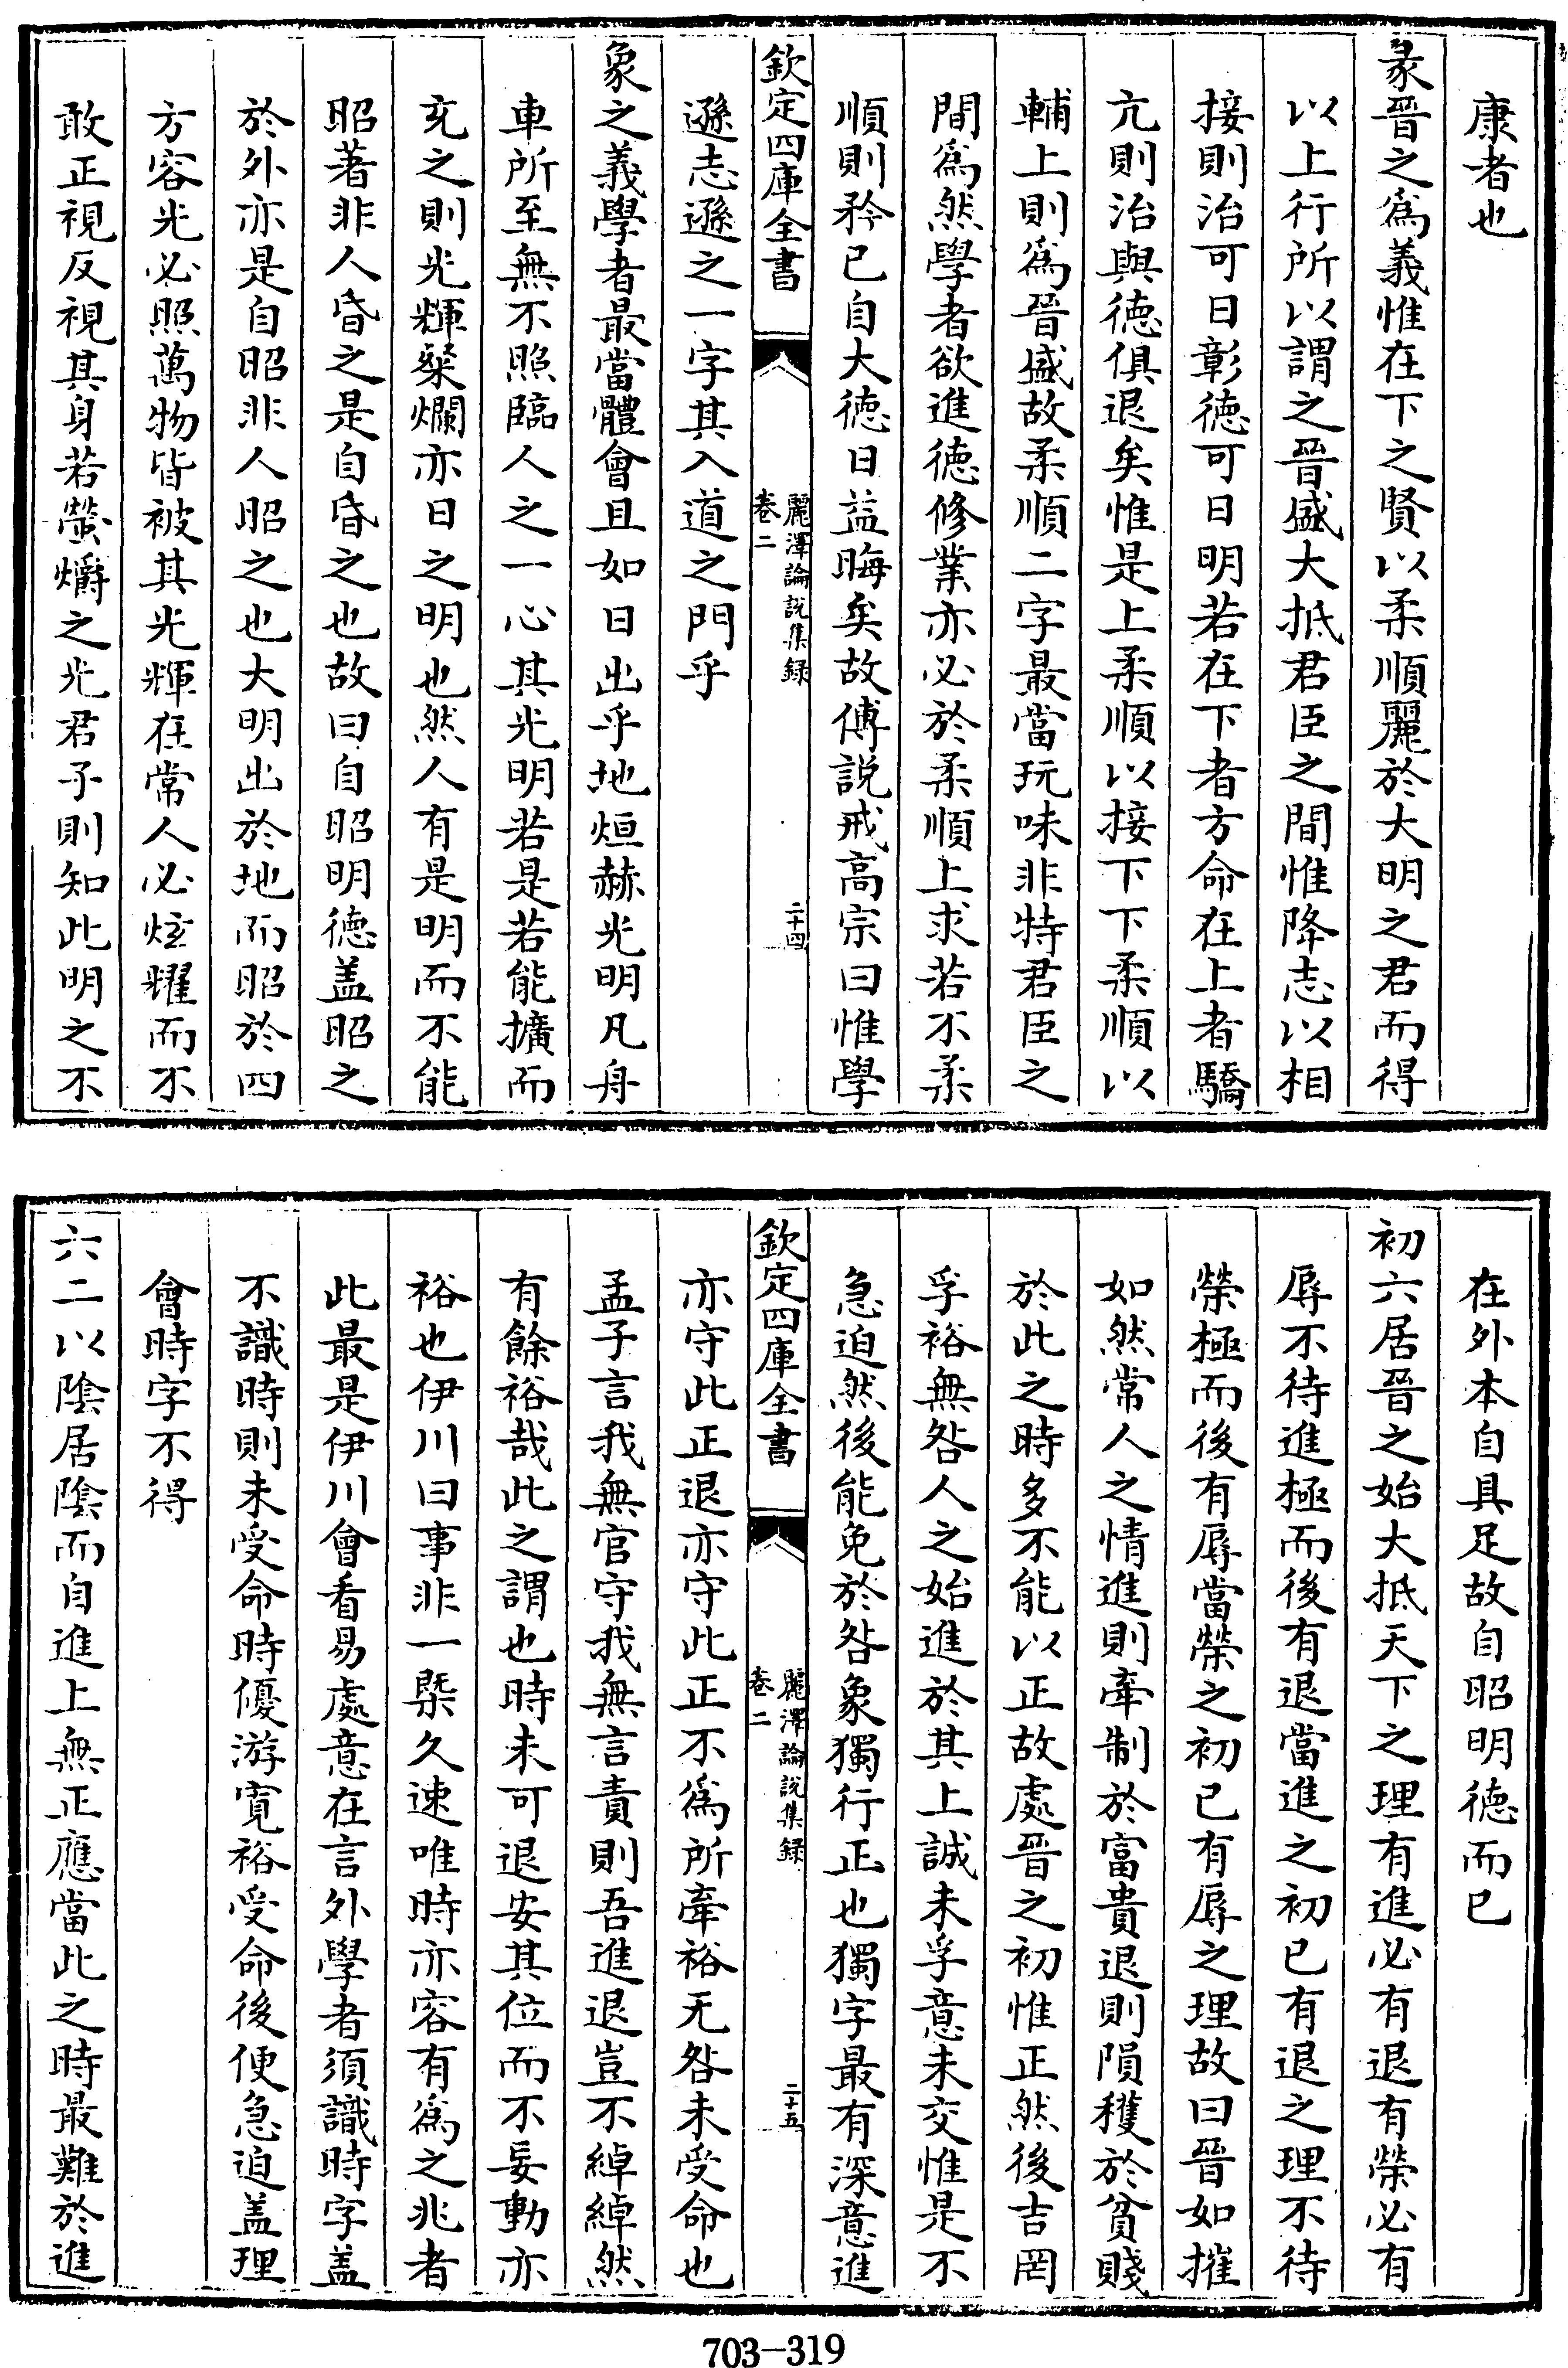 康者也
彖晉之爲義惟在下之賢以柔順麗於大明之君而得
以上行所以謂之晉盛大抵君臣之間惟降志以相
接則治可日彰徳可日明若在下者方命在上者驕
亢則治與徳俱退矣惟是上柔順以接下下柔順以
輔上則爲晉盛故柔順二字最當玩味非特君臣之
間爲然學者欲進徳修業亦必於柔順上求若不柔
順則矜已自大徳日益晦矣故傅説戒高宗曰惟學
欽定四庫全書
麗澤論説集録
卷二
二十四
遜志遜之一字其入道之門乎
象之義學者最當體會且如日出乎地烜赫光明凡舟
車所至無不照臨人之一心其光明若是若能擴而
充之則光輝粲爛亦日之明也然人有是明而不能
昭著非人昏之是自昏之也故曰自昭明徳盖昭之
於外亦是自昭非人昭之也大明出於地而昭於四
方容光必照萬物皆被其光輝在常人必炫耀而不
敢正視反視其身若螢爝之光君子則知此明之不
在外本自具足故自昭明徳而已
初六居晉之始大抵天下之理有進必有退有榮必有
辱不待進極而後有退當進之初已有退之理不待
榮極而後有辱當榮之初已有辱之理故曰晉如摧
如然常人之情進則牽制於富貴退則隕穫於貧賤
於此之時多不能以正故處晉之初惟正然後吉罔
孚裕無咎人之始進於其上誠未孚意未交惟是不
急迫然後能免於咎象獨行正也獨字最有深意進
欽定四庫全書
麗澤論説集録
卷二
二十五
亦守此正退亦守此正不爲所牽裕无咎未受命也
孟子言我無官守我無言責則吾進退豈不綽綽然
有餘裕哉此之謂也時未可退安其位而不妄動亦
裕也伊川曰事非一槩久速唯時亦容有爲之兆者
此最是伊川會看易處意在言外學者須識時字盖
不識時則未受命時優游寛裕受命後便急迫盖理
會時字不得
六二以陰居陰而自進上無正應當此之時最難於進
703-319